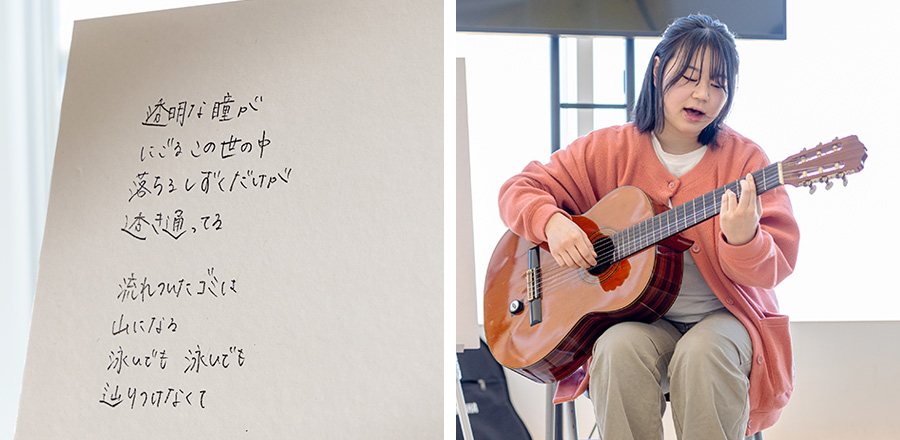 透明な瞳が
にごるこの世の中
落ちるしずくだけが
透き通ってる
流れついたゴミは
山になる
泳いでも 泳いでも
辿りつけなくて